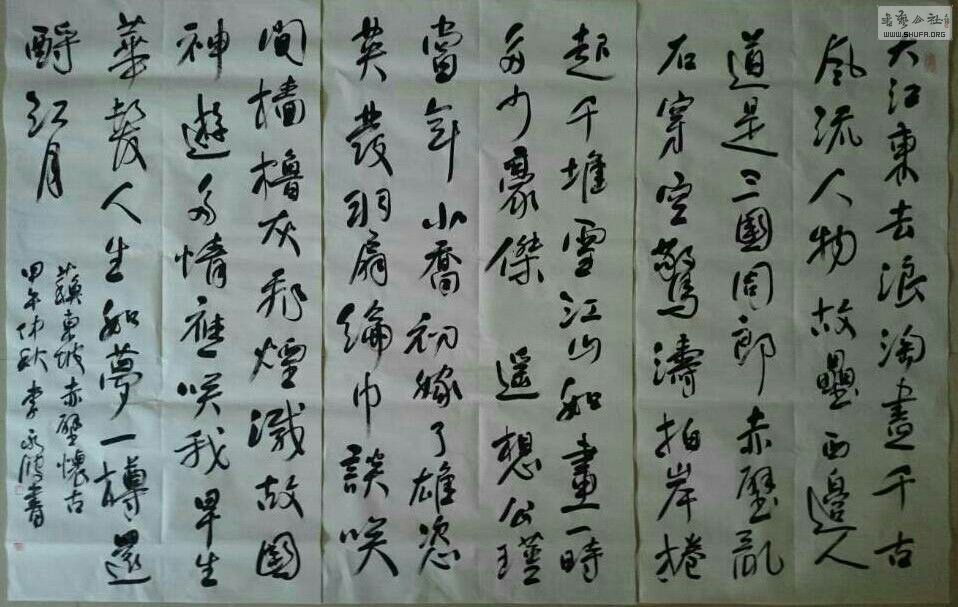 大江東去浪淘盡千古
風流人物故壘西邊人
道是三國周郎赤壁亂
石穿空驚濤拍岸捲
起千堆雪江山如畫一時
多少豪傑遥想公瑾
當年小喬初嫁了雄恣
英發羽扇綸巾談咲
間檣櫓灰飛煙滅故國
神遊多情應咲我早生
華髮人生如夢一樽還
酹江月
蘇東坡赤壁懷古
甲午仲秋李永書
书艺公社
WWW.SHUFA.ORG